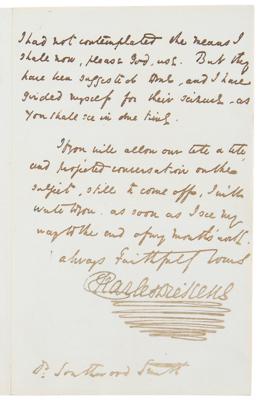 I had not contemplated the means I
shall now, please God, use. But they
have been suggested to me, and I have
girded myself for their seizure - as
you shall see in due time.
If you will allow our tête a tête
and projected conversation on the
subject, still to come off, I will
write to you as soon as I see my
way to the end of my month's work.
always Faithfully Yours
Charles Dickens
Dr. Southwood Smith